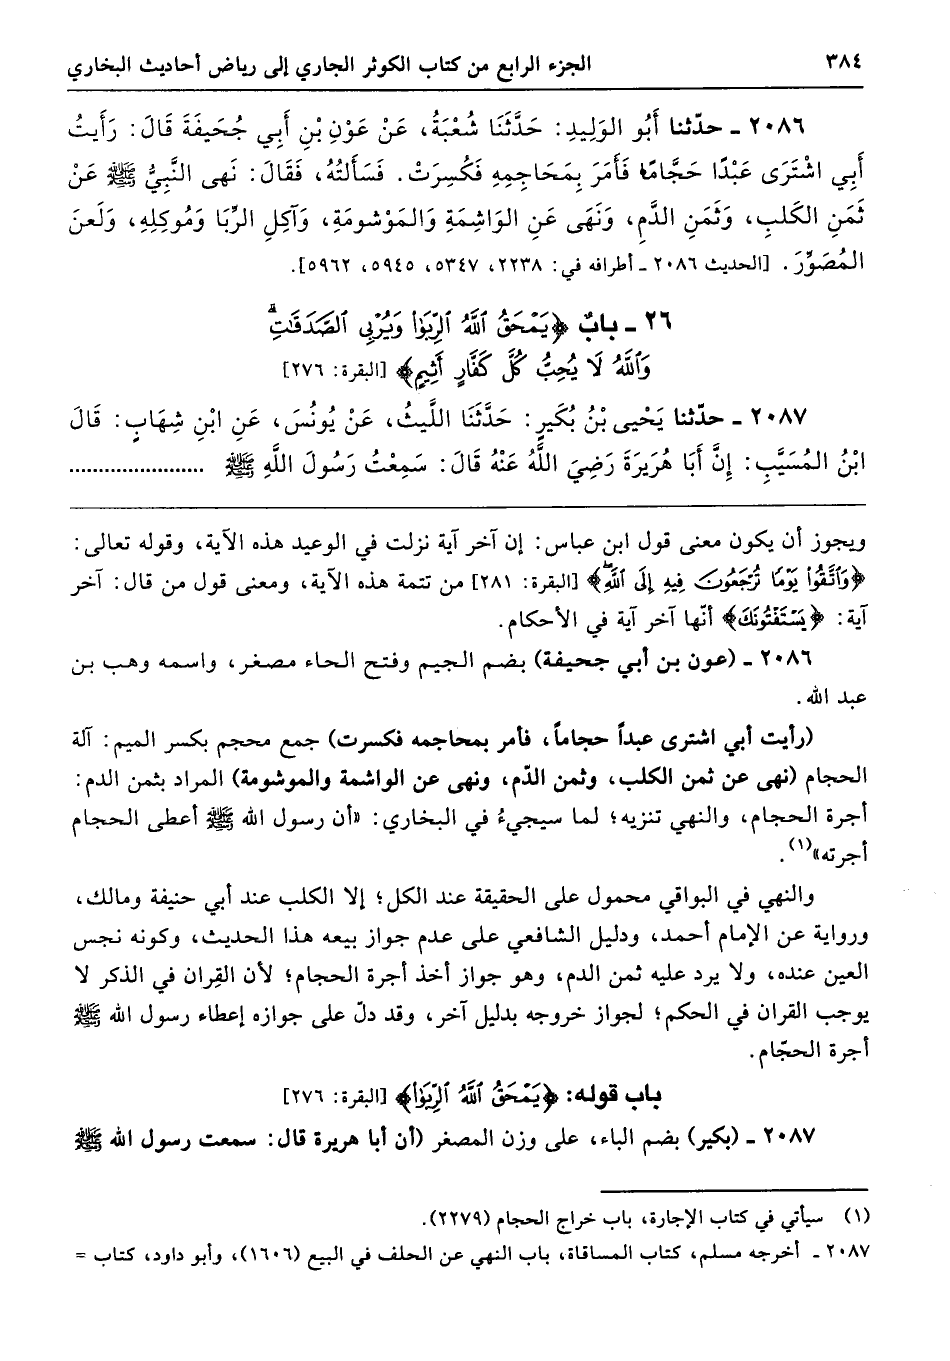 ٣٨٤ الجزء الرابع من كتاب الكوثر الجاري إلى رياض أحاديث البخاري
٢٠٨٦ ـ حدّثنا أَبُو الوَلِيدِ: حَدَّثَنَا شُعْبَةُ، عَنْ عَوْنِ بْنِ أَبِي جُحَيفَةَ قَالَ: رَأَيتُ
أَبِي اشْتَرَى عَبْدًا حَجَّامًا فَأَمَرَ بِمَحَاجِمِهِ فَكُسِرَتْ. فَسَأَلتُهُ، فَقَالَ: نَهى النَّبِيُّ ﷺ عَنْ
ثَمَنِ الكَلبِ، وَثَمَنِ الدَّمِ، وَنَهَى عَنِ الوَاشِمَةِ وَالمَوْشومَةِ، وَآكِلِ الرِّبَا وَمُوكِلِهِ، وَلَعنَ
المُصَوِّرَ. [الحديث ٢٠٨٦ ـ أطرافه في: ٢٢٣٨، ٥٣٤٧، ٥٩٤٥، ٥٩٦٢].
٢٦ ـ بابٌ ﴿يَمْحَقُ ٱللَّهُ ٱلرِّبَوٰا۟ وَيُرْبِى ٱلصَّدَقَٰتِۗ
وَٱللَّهُ لَا يُحِبُّ كُلَّ كَفَّارٍ أَثِيمٍ﴾ [البقرة: ٢٧٦]
٢٠٨٧ ـ حدّثنا يَحْيى بْنُ بُكَيرٍ: حَدَّثَنَا اللَّيثُ، عَنْ يُونُسَ، عَنِ ابْنِ شِهَابٍ: قَالَ
ابْنُ المُسَيَّبِ: إِنَّ أَبَا هُرَيرَةَ رَضِيَ اللَّهُ عَنْهُ قَالَ: سَمِعْتُ رَسُولَ اللَّهِ ﷺ .......................
ويجوز أن يكون معنى قول ابن عباس: إن آخر آية نزلت في الوعيد هذه الآية، وقوله تعالى:
﴿وَٱتَّقُوا۟ يَوْمًا تُرْجَعُونَ فِيهِ إِلَى ٱللَّهِۖ﴾ [البقرة: ٢٨١] من تتمة هذه الآية، ومعنى قول من قال: آخر
آية: ﴿يَسْتَفْتُونَكَ﴾ أنّها آخر آية في الأحكام.
٢٠٨٦ ـ (عون بن أبي جحيفة) بضم الجيم وفتح الحاء مصغر، واسمه وهب بن
عبد الله.
(رأيت أبي اشترى عبداً حجاماً، فأمر بمحاجمه فكسرت) جمع محجم بكسر الميم: آلة
الحجام (نهى عن ثمن الكلب، وثمن الدّم، ونهى عن الواشمة والموشومة) المراد بثمن الدم:
أجرة الحجام، والنهي تنزيه؛ لما سيجيءُ في البخاري: «أن رسول الله ﷺ أعطى الحجام
أجرته»(١).
والنهي في البواقي محمول على الحقيقة عند الكل؛ إلا الكلب عند أبي حنيفة ومالك،
ورواية عن الإمام أحمد، ودليل الشافعي على عدم جواز بيعه هذا الحديث، وكونه نجس
العين عنده، ولا يرد عليه ثمن الدم، وهو جواز أخذ أجرة الحجام؛ لأن القِران في الذكر لا
يوجب القران في الحكم؛ لجواز خروجه بدليل آخر، وقد دلّ على جوازه إعطاء رسول الله ﷺ
أجرة الحجّام.
باب قوله: ﴿يَمْحَقُ ٱللَّهُ ٱلرِّبَوٰا۟﴾ [البقرة: ٢٧٦]
٢٠٨٧ ـ (بكير) بضم الباء، على وزن المصغر (أن أبا هريرة قال: سمعت رسول الله ﷺ
(١) سيأتي في كتاب الإجارة، باب خراج الحجام (٢٢٧٩).
٢٠٨٧ ـ أخرجه مسلم، كتاب المساقاة، باب النهي عن الحلف في البيع (١٦٠٦)، وأبو داود، كتاب =